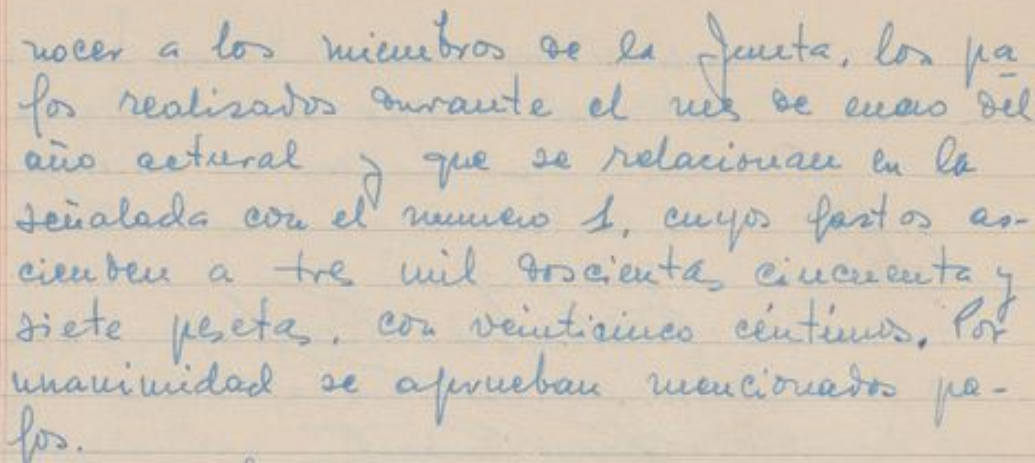 nocer a los miembros de la Junta, los pa
gos realizados durante el mes de enero del
año actural y que se relacionan en la
señalada con el numero 1, cuyos gastos as-
cienden a tres mil doscientas cincuenta y
siete pesetas, con veinticinco céntimos. Por
unanimidad se aprueban mencionados pa-
gos.